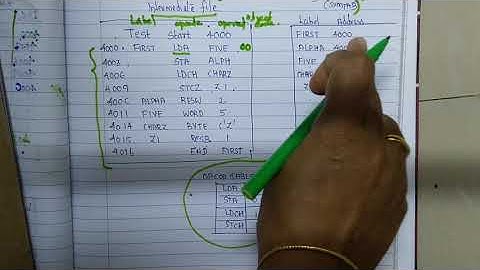 Intermediate file
(symtab)
Label opcode operand
Label Address
Test Start 4000
FIRST 4000
4000 FIRST LDA FIVE 00
ALPHA 400
4003 STA ALPH
FIVE
4006 LDCH CHARZ
CHAR
4009 STCZ Z1
400C ALPHA RESW 2
4011 FIVE WORD 5
4014 CHARZ BYTE C'Z'
4015 Z1 RESB 1
4016 END FIRST
LDA
STA
LDCH
STCH